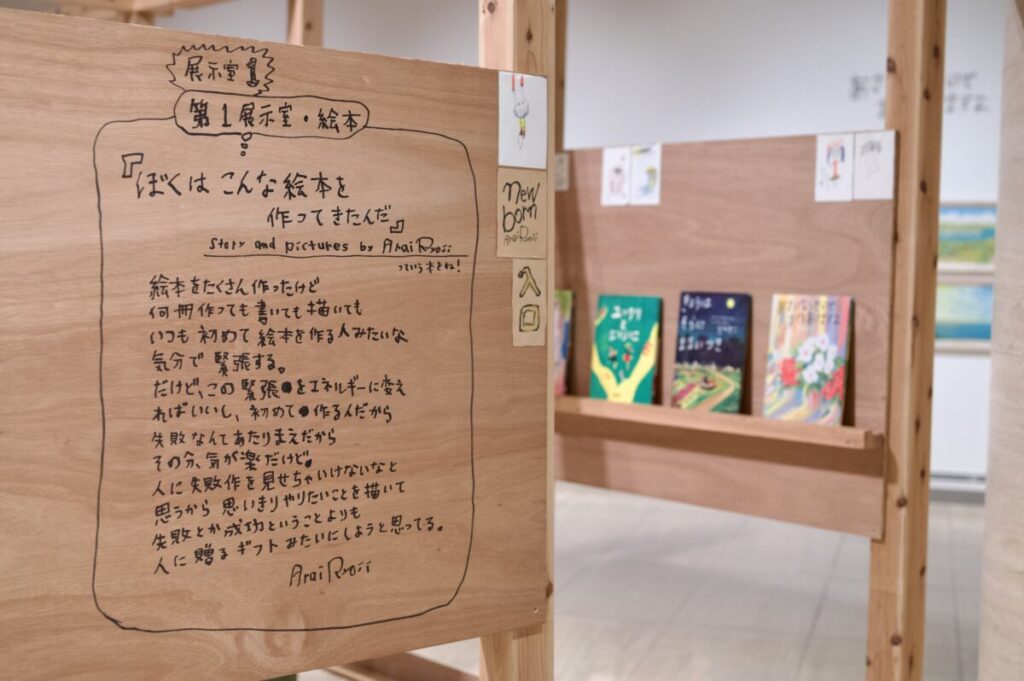 展示室1
第1展示室・絵本
『ぼくは こんな絵本を
作ってきたんだ』
Story and pictures by Arai Ryoji
っていう本とね!
絵本をたくさん作ったけど
何冊作っても書いても描いても
いつも 初めて 絵本を作る人みたいな
気分で 緊張する。
だけど、この 緊張をエネルギーに変え
ればいいし、初めて作るんだから
失敗なんてあたりまえだから
その分、気が楽だけど。
人に失敗作を見せちゃいけないなと
思うから 思いきりやりたいことを描いて
失敗とか成功ということよりも
人に贈るギフトみたいにしようと思ってる。
Arai Ryoji
new
born
Arai Ryoji
きょうは
そらに
まるいつき